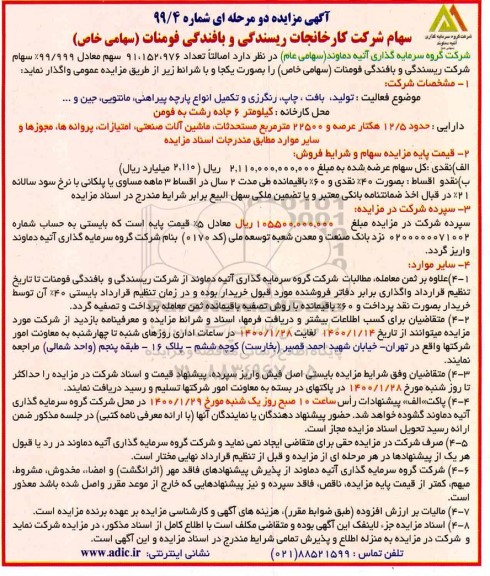 آگهی مزایده دو مرحله ای شماره ۹۹/۴
سهام شرکت کارخانجات ریسندگی و بافندگی فومنات (سهامی خاص)
شرکت گروه سرمایه گذاری آتیه دماوند
شرکت گروه سرمایه گذاری آتیه دماوند(سهامی عام) در نظر دارد اصالتاً تعداد ۹۱،۱۵۲،۹۷۶ سهم معادل ۹۹/۹۹۹٪ سهام
شرکت ریسندگی و بافندگی فومنات (سهامی خاص) را بصورت یکجا و با شرایط زیر از طریق مزایده عمومی واگذار نماید:
۱- مشخصات شرکت:
موضوع فعالیت : تولید، بافت ، چاپ، رنگرزی و تکمیل انواع پارچه پیراهنی، مانتویی، جین و ...
محل کارخانه : کیلومتر ۶ جاده رشت به فومن
دارایی : حدود ۱۲/۵ هکتار عرصه و ۲۲۵۰۰ مترمربع مستحدثات، ماشین آلات صنعتی، امتیازات، پروانه ها، مجوزها و
سایر موارد مطابق مندرجات اسناد مزایده
۲- قیمت پایه مزایده سهام و شرایط فروش:
الف)نقدی :کل سهام عرضه شده به مبلغ ۲,۱۱۰,۰۰۰,۰۰۰,۰۰۰ ریال (۲,۱۱۰ میلیارد ریال)
ب)نقدو اقساط : بصورت ۴۰٪ نقدی و ۶۰٪ باقیمانده طی مدت ۲ سال در اقساط ۳ ماهه مساوی یا پلکانی با نرخ سود سالانه
۲۱٪ در قبال اخذ ضمانتنامه بانکی معتبر و یا تضمین ملکی سهل البیع برابر شرایط مندرج در اسناد مزایده
۳- سپرده شرکت در مزایده:
سپرده شرکت در مزایده مبلغ ۱۰۵۵۰۰,۰۰۰,۰۰۰ ریال معادل ۵٪ قیمت پایه است که بایستی به حساب شماره
۰۲۰۰۰۰۰۰۷۱۰۰۲ نزد بانک صنعت و معدن شعبه توسعه ملی (کد ۰۱۷۰) بنام شرکت گروه سرمایه گذاری آتیه دماوند
واریز گردد.
۴- سایر موارد:
۴-۱)علاوه بر ثمن معامله، مطالبات شرکت گروه سرمایه گذاری آتیه دماوند از شرکت ریسندگی و بافندگی فومنات تا تاریخ
تنظیم قرارداد واگذاری برابر دفاتر فروشنده مورد قبول خریدار بوده و در زمان تنظیم قرارداد بایستی ۴۰٪ آن توسط
خریدار بصورت نقد پرداخت و ۶۰٪ باقیمانده با روش تصفیه باقیمانده ثمن معامله پرداخت و تصفیه گردد.
۴-۲) متقاضیان برای کسب اطلاعات بیشتر و دریافت فرمها، اسناد و شرایط مزایده و معرفینامه بازدید از شرکت مورد
مزایده میتوانند از تاریخ ۱۴۰۰/۱/۱۴ لغایت ۱۴۰۰/۱/۲۸ در ساعات اداری روزهای شنبه تا چهارشنبه به معاونت امور
شرکتها واقع در تهران- خیابان شهید احمد قصیر (بخارست) کوچه ششم - پلاک ۶ - طبقه پنجم (واحد شمالی) مراجعه
نمایند.
۴-۳) متقاضیان وفق شرایط مزایده بایستی اصل فیش واریز سپرده، پیشنهاد قیمت و اسناد شرکت در مزایده را حداکثر
تا روز شنبه مورخ ۱۴۰۰/۱/۲۸ در پاکتهای در بسته به معاونت امور شرکتها تسلیم و رسید دریافت نمایند.
۴-۴) پاکت«الف» پیشنهادات رأس ساعت ۱۰ صبح روز یک شنبه مورخ ۱۴۰۰/۱/۲۹ در محل شرکت گروه سرمایه گذاری
آتیه دماوند گشوده خواهد شد. حضور پیشنهاد دهندگان یا نمایندگان آنها (با ارائه معرفی نامه کتبی) در جلسه مذکور ضمن
ارائه رسید تحویل اسناد مزایده مجاز است.
۴-۵) صرف شرکت در مزایده حقی برای متقاضی ایجاد نمی نماید و شرکت گروه سرمایه گذاری آتیه دماوند در رد یا قبول
هر یک از پیشنهادها در هر مرحله ای از مزایده و قبل از تنظیم قرارداد نهایی مختار است.
۴-۶) شرکت گروه سرمایه گذاری آتیه دماوند از پذیرش پیشنهادهای فاقد مهر (اثرانگشت) و امضاء، مخدوش، مشروط،
مبهم، کمتر از قیمت پایه مزایده، ناقص، فاقد سپرده و نیز پیشنهادهایی که خارج از موعد مقرر واصل شده باشد معذور
است.
۴-۷) مالیات بر ارزش افزوده (طبق ضوابط مقرر)، هزینه های آگهی و کارشناسی مزایده بر عهده برنده مزایده است.
۴-۸) اسناد مزایده جزء لاینفک این آگهی بوده و متقاضی مکلف است با اطلاع کامل از اسناد مذکور، در مزایده شرکت نماید
و شرکت در مزایده به منزله اطلاع و پذیرش تمامی شرایط مندرج در اسناد مزایده و این آگهی است.
تلفن تماس : ۸۸۵۲۱۵۹۹(۰۲۱) نشانی اینترنتی: www.adic.ir